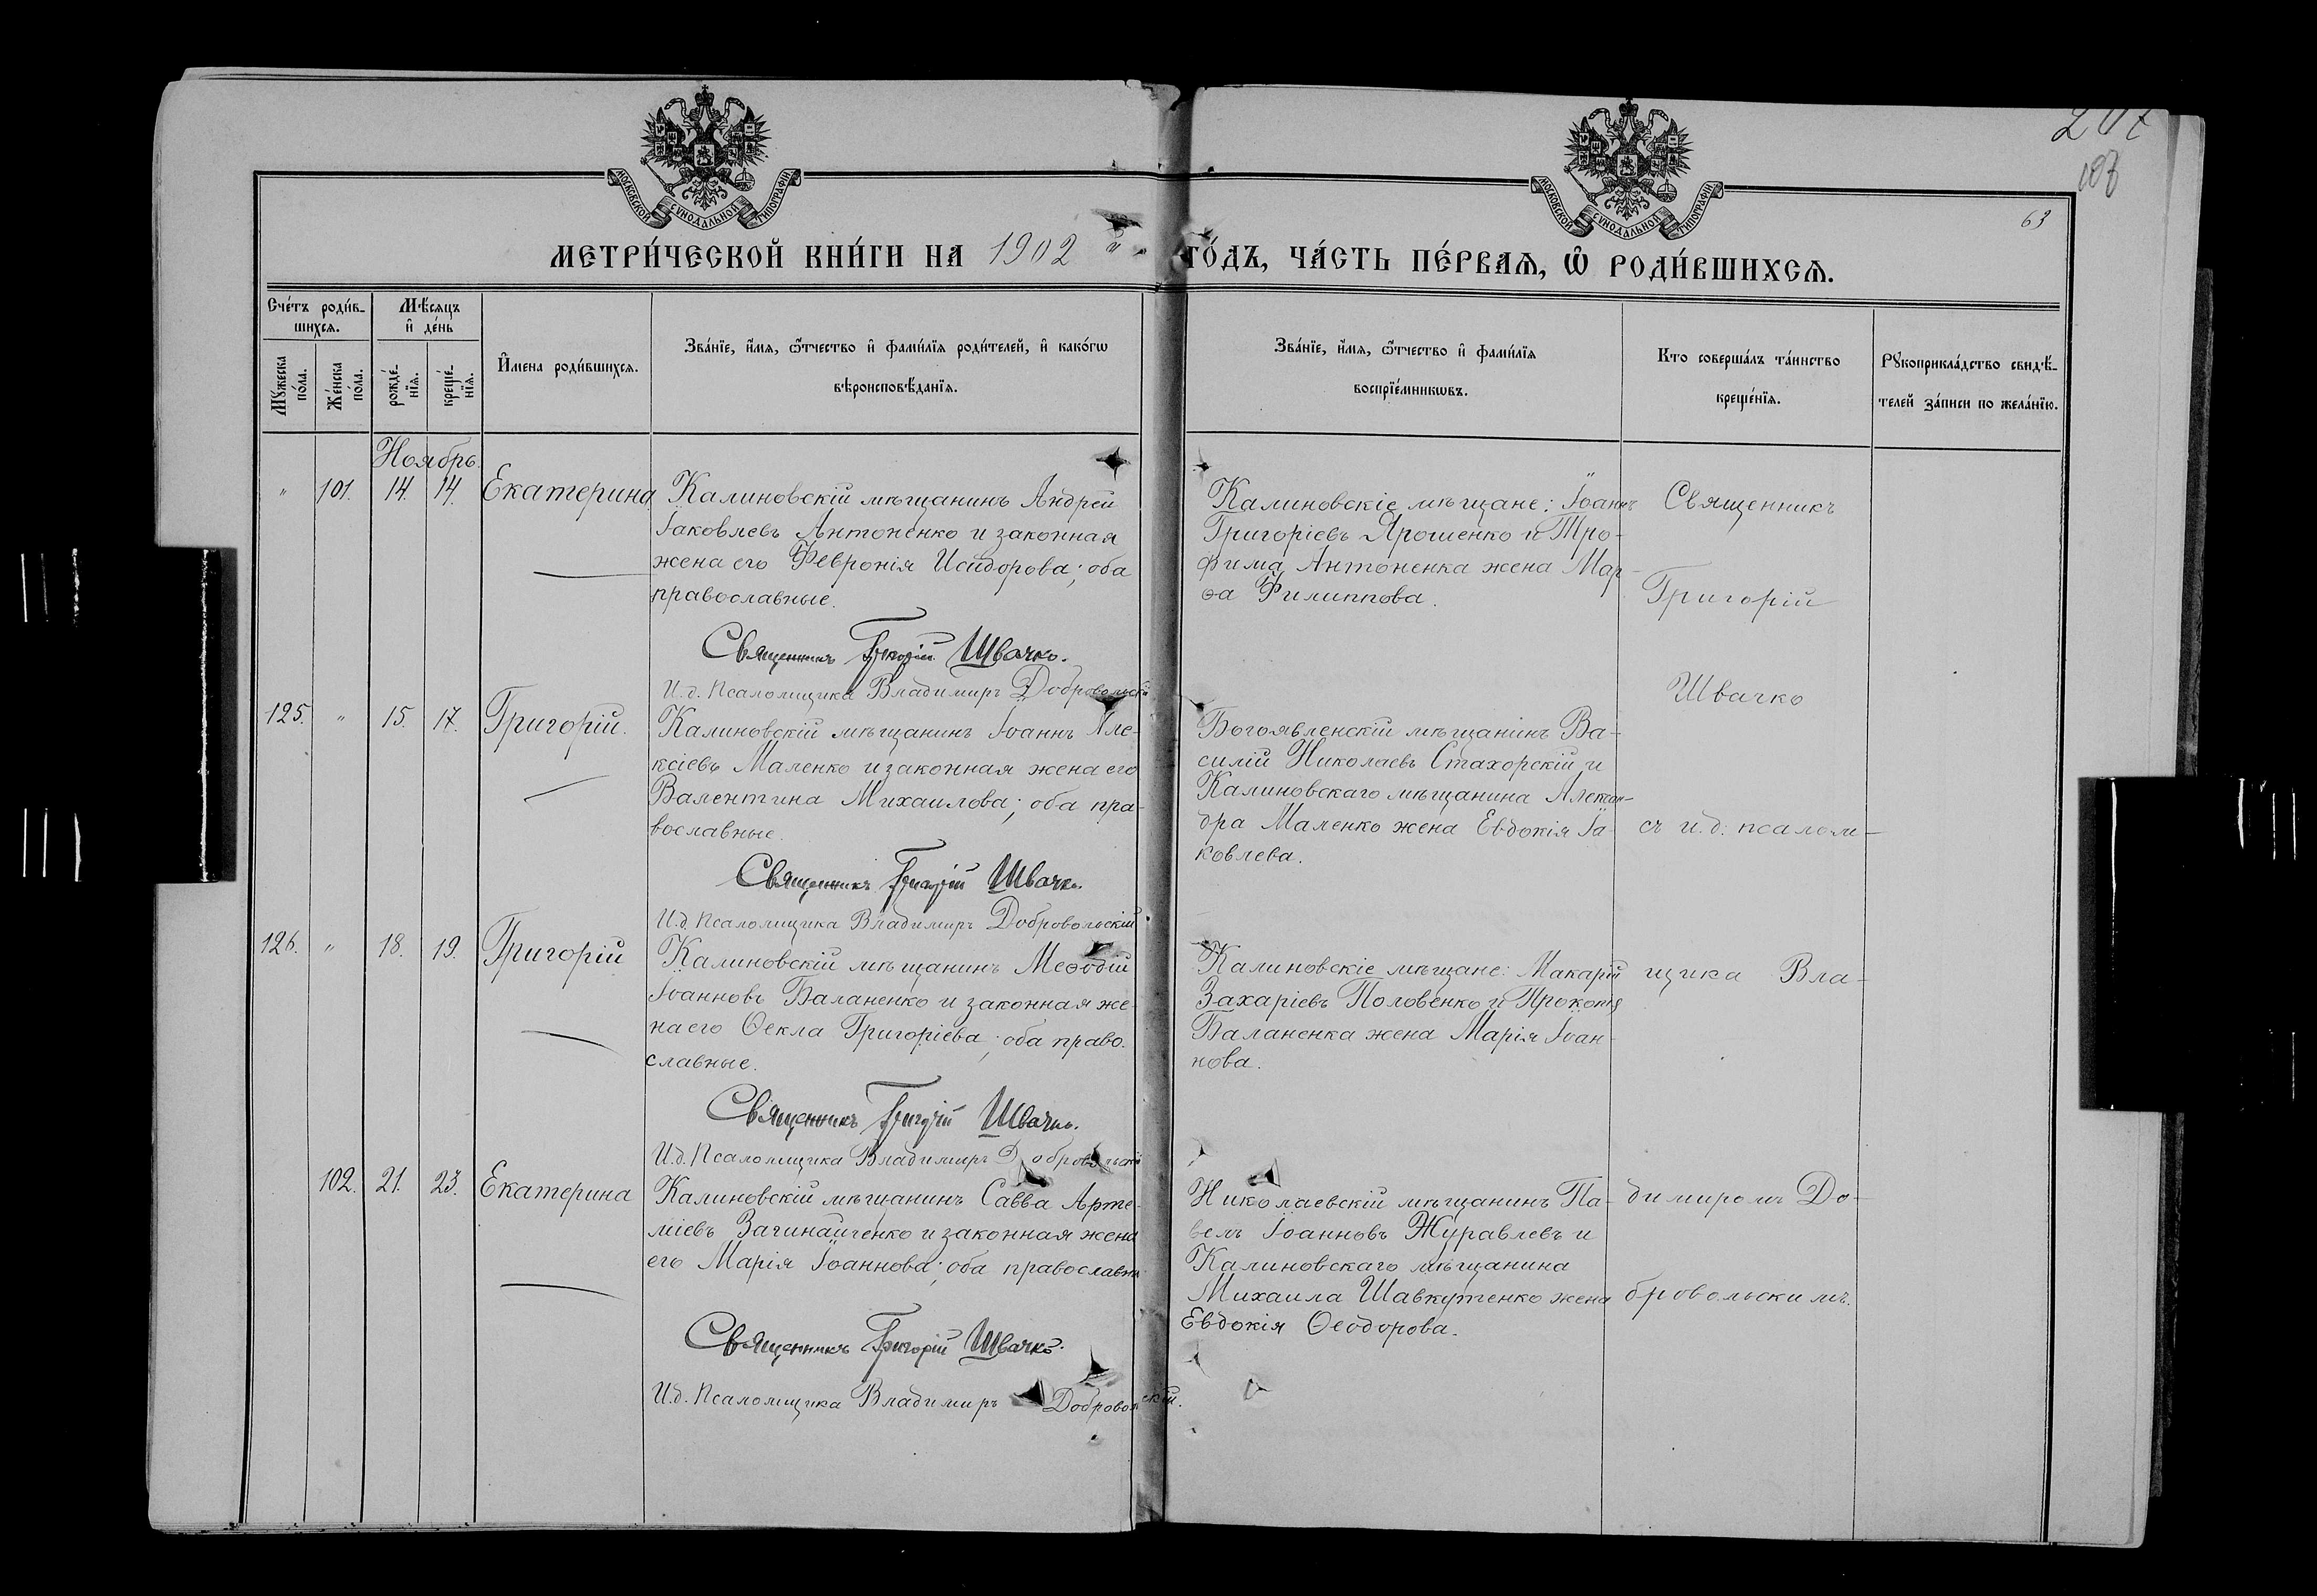 207
107
63
МОСКОВСКОЙ СУНОДАЛЬНОЙ ТИПОГРАФІИ
МОСКОВСКОЙ СУНОДАЛЬНОЙ ТИПОГРАФІИ
МЕТРИ́ЧЕСКОЙ КНИ́ГИ НА 1902 й ГО́ДЪ, ЧА́СТЬ ПЕ́РВАѦ, Ѽ РОДИ́ВШИХСѦ.
Сче́тъ роди́в-
шихсѧ.
Мѣ́сѧцъ
и҆ де́нь
Мꙋ́жеска
по́ла.
Же́нска
по́ла.
рожде́-
нїѧ.
креще́-
нїѧ.
И҆мена роди́вшихсѧ.
Зва́нїе, и҆́мѧ, ѻ҆́тчество и҆ фами́лїѧ роди́телей, и҆ како́гѡ
вѣроисповѣ́данїѧ.
Зва́нїе, и҆́мѧ, ѻ҆́тчество и҆ фами́лїѧ
воспрїе́мникѡвъ.
Кто соверша́лъ та́инство
креще́нїѧ.
Рꙋкоприкла́дство свидѣ́-
телей за́писи по жела́нїю.
Ноябрь.
" 101. 14. 14. Екатерина
Калиновскій мѣщанинъ Андрей
Іаковлевъ Антоненко и законная
жена его Февронія Исидорова; оба
православные.
Священникъ Григорій Швачко.
И.д. Псаломщика Владимиръ Добровольскій
Калиновскіе мѣщане: Іоаннъ
Григоріевъ Ярошенко и Тро-
фима Антоненка жена Мар-
ѳа Филиппова.
125. " 15. 17. Григорій.
Калиновскій мѣщанинъ Іоаннъ Але-
ксіевъ Маленко и законная жена его
Валентина Михаилова; оба пра-
вославные.
Священникъ Григорій Швачко.
И.д. Псаломщика Владимиръ Добровольскій
Богоявленскій мѣщанинъ Ва-
силій Николаевъ Стахорскій и
Калиновскаго мѣщанина Алексан-
дра Маленко жена Евдокія Іа-
ковлева.
126. " 18. 19. Григорій
Калиновскій мѣщанинъ Меѳодій
Іоанновъ Баланенко и законная же-
на его Ѳекла Григоріева; оба право-
славные.
Священникъ Григорій Швачко.
И.д. Псаломщика Владимиръ Добровольскій
Калиновскіе мѣщане: Макарій
Захаріевъ Половенко и Прокопія
Баланенка жена Марія Іоан-
нова.
102. 21. 23. Екатерина
Калиновскій мѣщанинъ Савва Арте-
міевъ Зачинайченко и законная жена
его Марія Іоаннова; оба православны
Священникъ Григорій Швачко.
И.д. Псаломщика Владимиръ Добровольскій.
Николаевскій мѣщанинъ Па-
велъ Іоанновъ Журавлевъ и
Калиновскаго мѣщанина
Михаила Шавкутенко жена
Евдокія Ѳеодорова.
Священникъ
Григорій
Швачко
съ и.д. псалом-
щика Вла-
димиромъ До-
бровольскимъ.